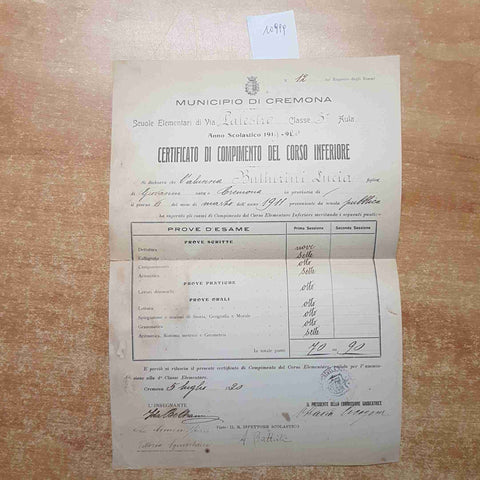 10999
N. 12 del Registro degli Esami
MUNICIPIO DI CREMONA
Scuole Elementari di Via Palestro Classe 3ª Aula
Anno Scolastico 191
CERTIFICATO DI COMPIMENTO DEL CORSO INFERIORE
Si dichiara che l'alunna Lucia figlia
di Giovanni nata a Cremona in provincia di /
il giorno 6 del mese di marzo dell'anno 1911 proveniente da scuola pubblica
ha superato gli esami di Compimento del Corso Elementare Inferiore meritando i seguenti punti:
PROVE D'ESAME Prima Sessione Seconda Sessione
PROVE SCRITTE
Dettatura nove
Calligrafia sette
Componimento otto
Aritmetica sette
PROVE PRATICHE
Lavori donneschi otto
PROVE ORALI
Lettura otto
Spiegazione e nozioni di Storia, Geografia e Morale otto
Grammatica otto
Aritmetica, Sistema metrico e Geometria sette
In totale punti 70 - 90
E perciò si rilascia il presente certificato di Compimento del Corso Elementare, valido per l'ammissione
alla 4ª Classe Elementare.
Cremona 5 luglio 1920
L'INSEGNANTE
IL PRESIDENTE DELLA COMMISSIONE ESAMINATRICE
Visto: IL R. ISPETTORE SCOLASTICO